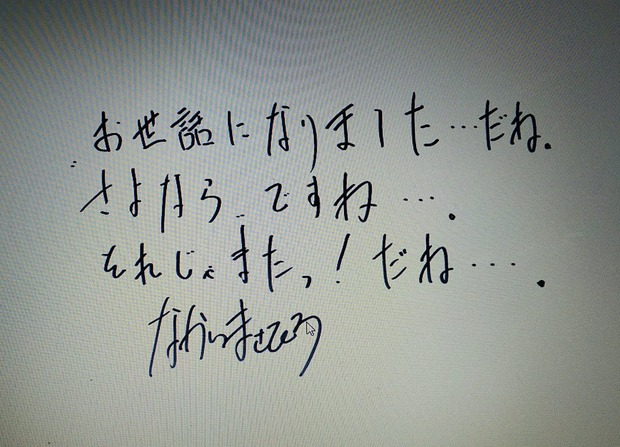 お世話になりました…だね.
さよなら ですね….
それじゃまたっ！だね….
なかいまさひろ